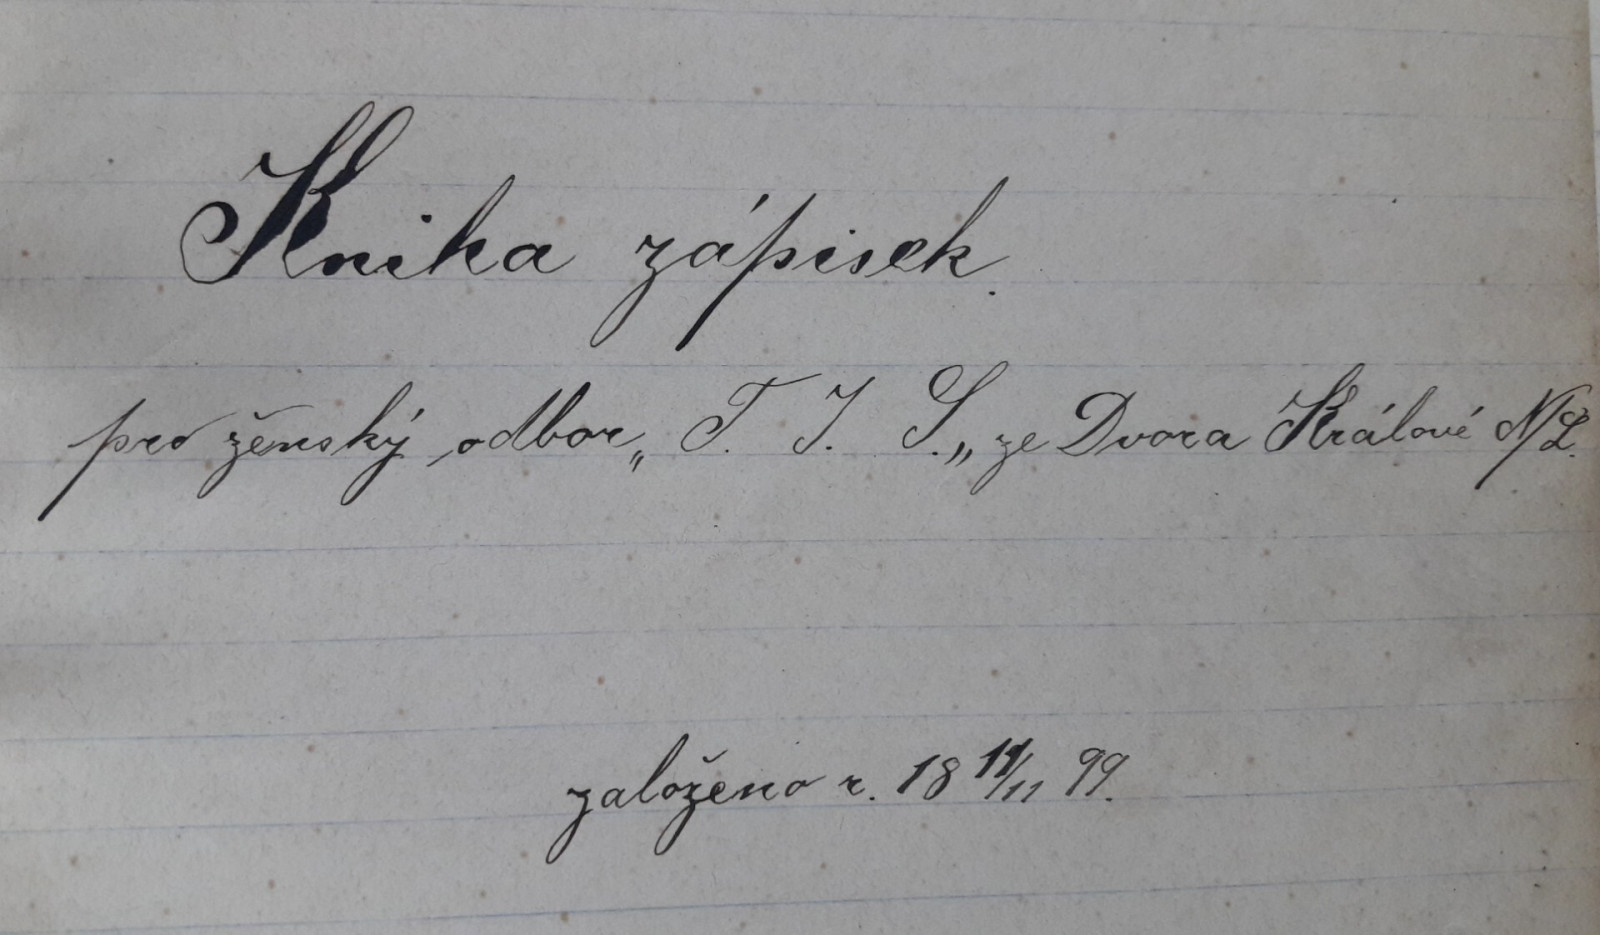 Kniha zápisek.
pro ženský odbor „T. J. S.„ ze Dvora Králové N/L.
založeno r. 18 11/11 99.